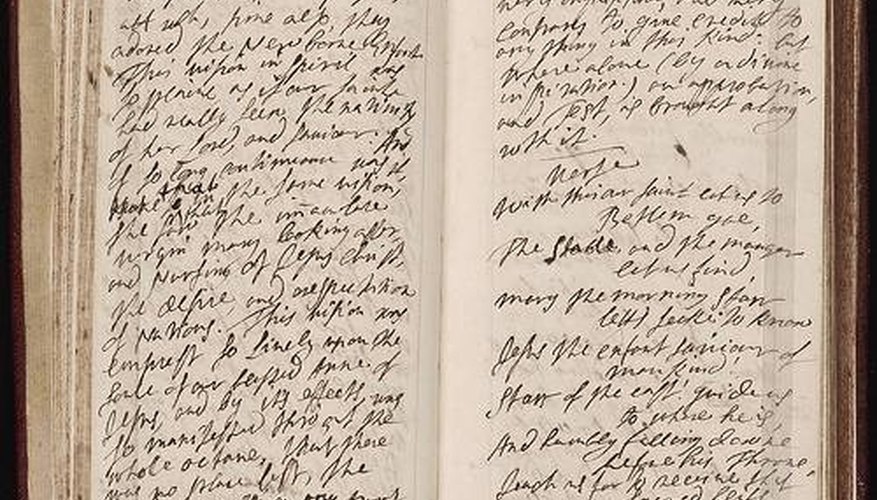 adored the New borne
This vision in spirit was
so plaine as if our sainte
had really seen the nativity
of her lord, and saviour. And
of so long continuance was it,
that in the same vision,
she saw the immaculate
virgin mary looking after
and Nursing of Jesus Christ,
the desire, and expectation
of Nations. This vision was
imprest so lively upon the
soule of our blessed Anne of
Jesus, and by its effects was
so manifested througout the
whole octave, that there
was no place left, the
Contrads to give credit to
any thing in this kind: but
where alone (by a divine
inspiration,) an approbation,
and Test, is brought along
with it.
Verse
With this our saint let us to
Betlem goe,
The Stable, and the manger
let us find,
mary the morning Starr
letts seeke to know
Jesus the enfant saviour of
mankind,
Starr of the east guide us
to where he is,
And humbly falling downe
before his Throne,